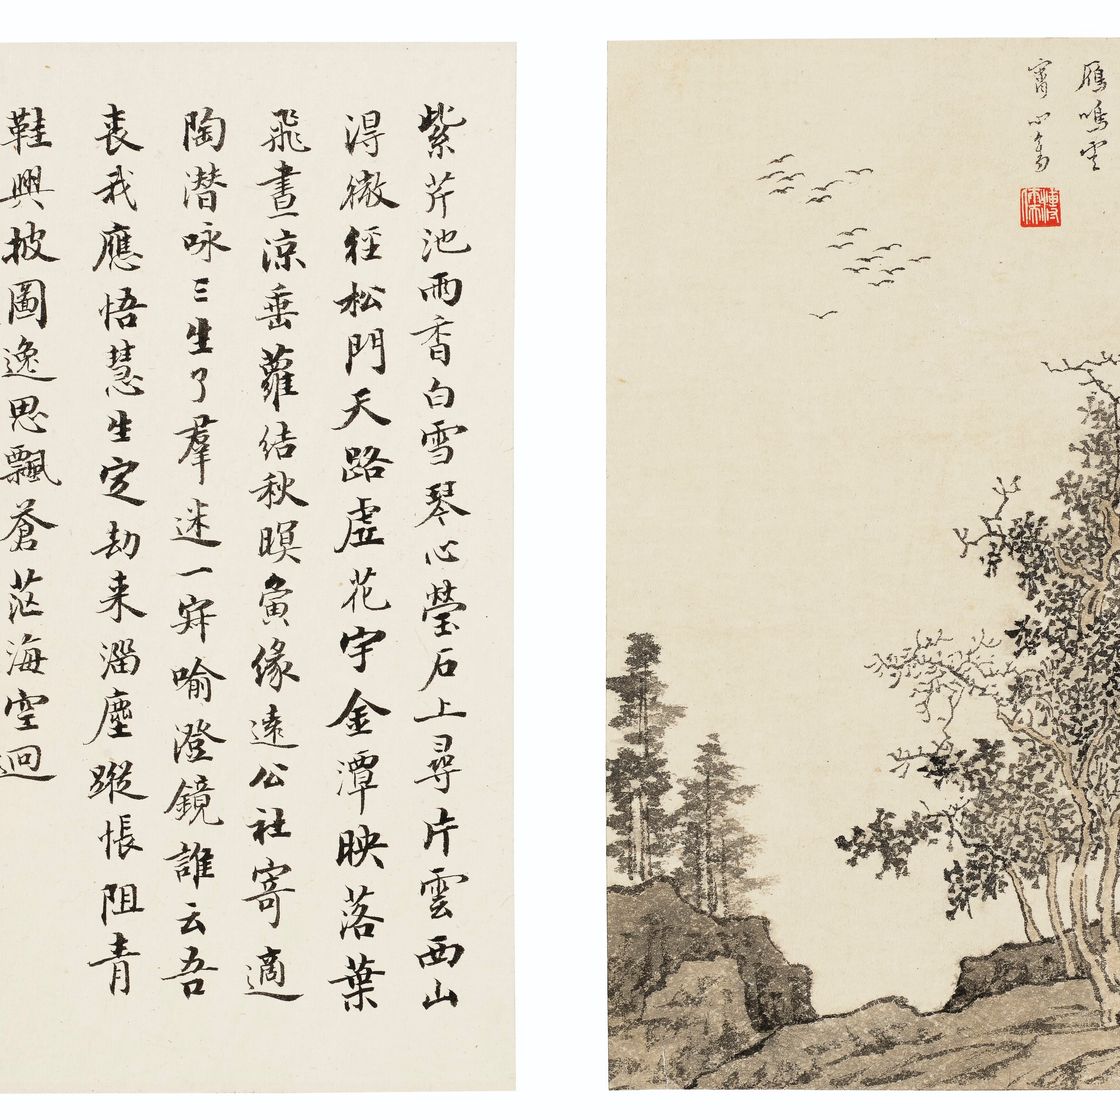 雁鳴雲
霄心畬
溥儒
紫芹池雨香白雪琴心瑩石上尋片雲西山
淂微径松門天路虛花宇金潭映落葉
飛晝凉垂蘿結秋暝夤緣遠公社寄適
陶潜咏三生了羣迷一寐喻澄鏡誰云吾
喪我應悟慧生定劫来淄塵蹤悵阻青
鞋興披圖逸思飄蒼茫海空迥